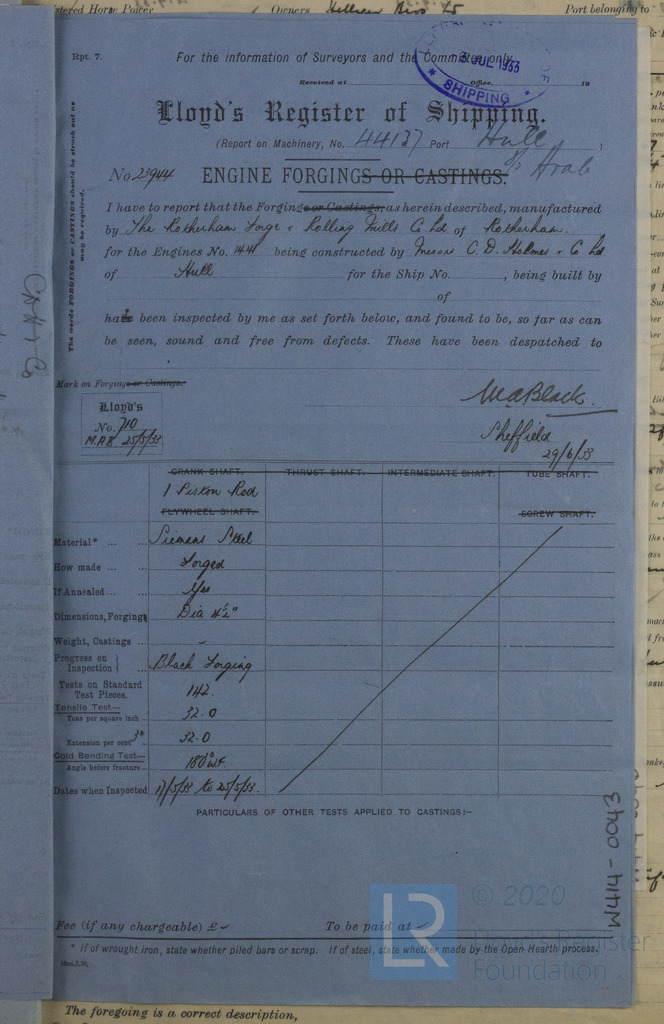 stered Horse Power Owners Hellyer Bros Ld Port belonging to
Rpt. 7.
For the information of Surveyors and the Committee only.
3 JUL 1933
SHIPPING
Received at Office, 19
Lloyd's Register of Shipping.
(Report on Machinery, No. 44137 Port Hull )
S/T Arab
No 23944 ENGINE FORGINGS OR CASTINGS.
The words FORGINGS or CASTINGS should be struck out as may be required.
I have to report that the Forgings or Castings, as herein described, manufactured
by The Rotherham Forge & Rolling Mills Co. Ld of Rotherham
for the Engines No. 1411 being constructed by Messrs C. D. Holmes & Co Ld
of Hull for the Ship No. , being built by
of
have been inspected by me as set forth below, and found to be, so far as can
be seen, sound and free from defects. These have been despatched to
Mark on Forgings or Castings.
Lloyd's
No. 710
M.A.B 25/5/33
M A Black.
Sheffield
29/6/33
CRANK SHAFT. THRUST SHAFT. INTERMEDIATE SHAFT. TUBE SHAFT.
1 Piston Rod
FLYWHEEL SHAFT. SCREW SHAFT.
Material* ... ... Siemens Steel
How made ... ... Forged
If Annealed ... ... Yes
Dimensions, Forgings Dia 4½"
Weight, Castings ... -
Progress on Inspection } ... Black Forging
Tests on Standard Test Pieces. 142.
Tensile Test—
Tons per square inch 32.0
Extension per cent 3" 32.0
Cold Bending Test—
Angle before fracture 180° u.f.
Dates when Inspected 17/5/33 to 25/5/33.
PARTICULARS OF OTHER TESTS APPLIED TO CASTINGS:-
Fee (if any chargeable) £ To be paid at
* If of wrought iron, state whether piled bars or scrap. If of steel, state whether made by the Open Hearth process.
LR © 2020
Lloyd's Register
Foundation
The foregoing is a correct description,
WH14 - 0043